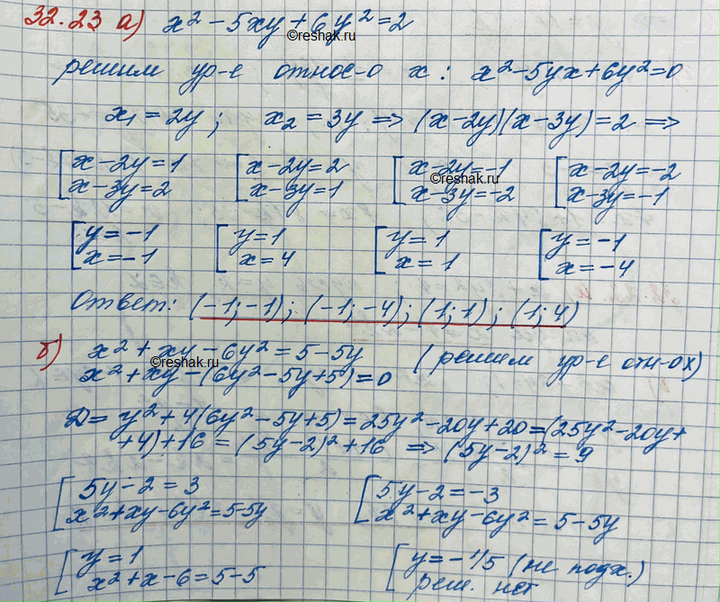 32.23 а) x² - 5xy + 6y² = 2
©reshak.ru
решим ур-е относ-о x: x² - 5yx + 6y² = 0
x₁ = 2y; x₂ = 3y => (x-2y)(x-3y) = 2 =>
[x-2y=1 [x-2y=2 [x-2y=-1 [x-2y=-2
©reshak.ru
x-3y=2 x-3y=1 x-3y=-2 x-3y=-1
[y=-1 [y=1 [y=1 [y=-1
x=-1 x=4 x=1 x=-4
Ответ: (-1;-1); (-1;-4); (1;1); (1;4)
б) x² + xy - 6y² = 5-5y (решим ур-е отн-о x)
©reshak.ru
x² + xy - (6y² - 5y + 5) = 0
D = y² + 4(6y² - 5y + 5) = 25y² - 20y + 20 = (25y² - 20y +
+4) + 16 = (5y-2)² + 16 => (5y-2)² = 9
[5y-2 = 3 [5y-2 = -3
x² + xy - 6y² = 5-5y x² + xy - 6y² = 5-5y
[y = 1 [y = -1/5 (не подх.)
x² + x - 6 = 5-5 реш. нет